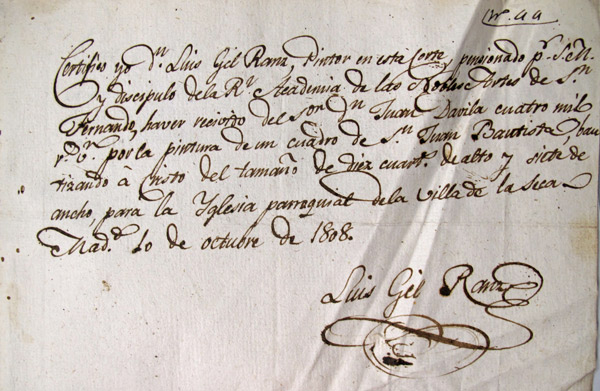 Nº. 44
Certifico yo Dⁿ. Luis Gil Ranz, Pintor en esta Corte, pensionado pʳ. S. M.
y discipulo de la Rˡ. Academia de las Nobles Artes de Sⁿ.
Fernando, haver recivido del Sᵒʳ. Dⁿ. Juan Davila cuatro mil
rˢ. vⁿ. por la pintura de un cuadro de Sⁿ. Juan Bautista, bau
tizando à Cristo del tamaño de diez cuartˢ. de alto y siete de
ancho, para la Yglesia parroquial de la Villa de la Seca
Madᵈ. 10 de octubre de 1808.
Luis Gil Ranz